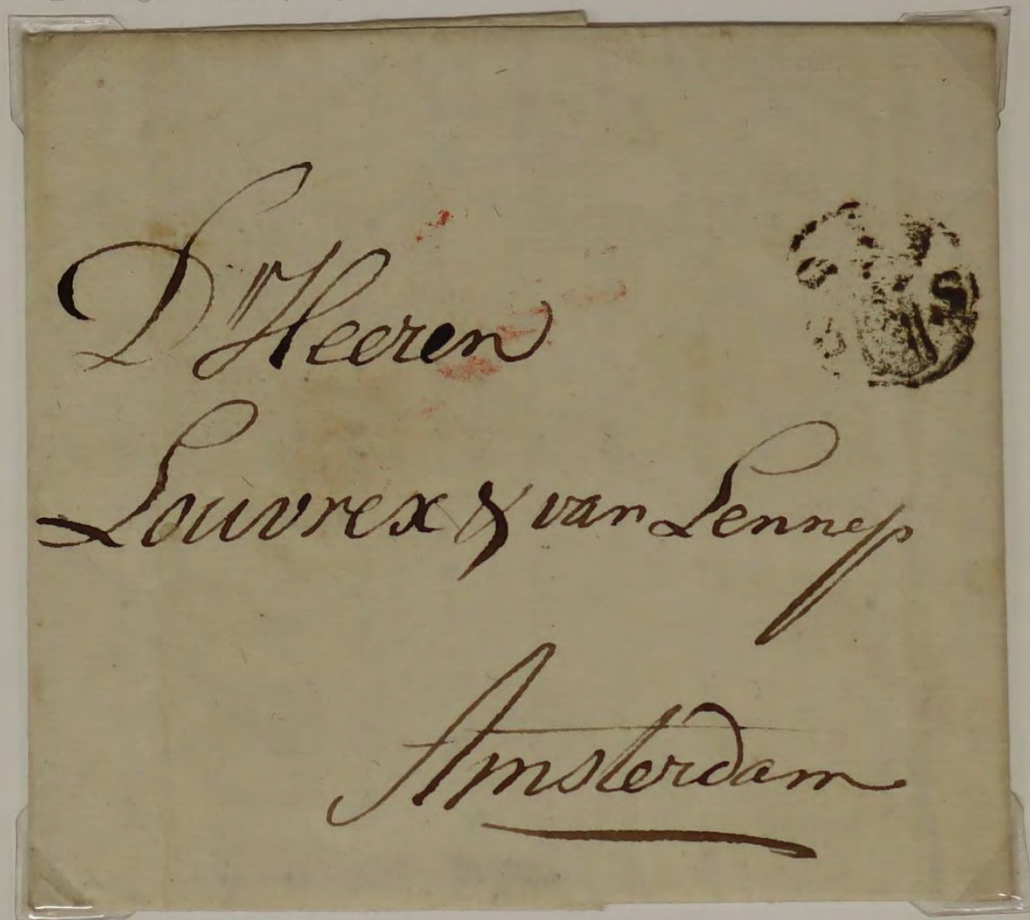 D'Heeren
Louvrex & van Lennep
Amsterdam